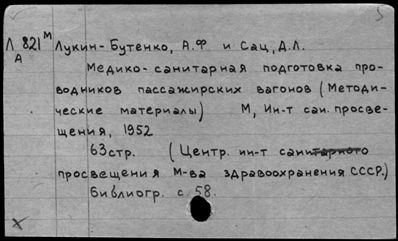 Л 821м Лукин-Бутенко, А.Ф. и Сац, Д.Л.
А
Медико-санитарная подготовка про-
водников пассажирских вагонов (Методи-
ческие материалы) М, Ин-т сан. просве-
щения, 1952
63стр. (Центр. ин-т санитарного
просвещения М-ва здравоохранения СССР.)
библиогр. с. 58.
х